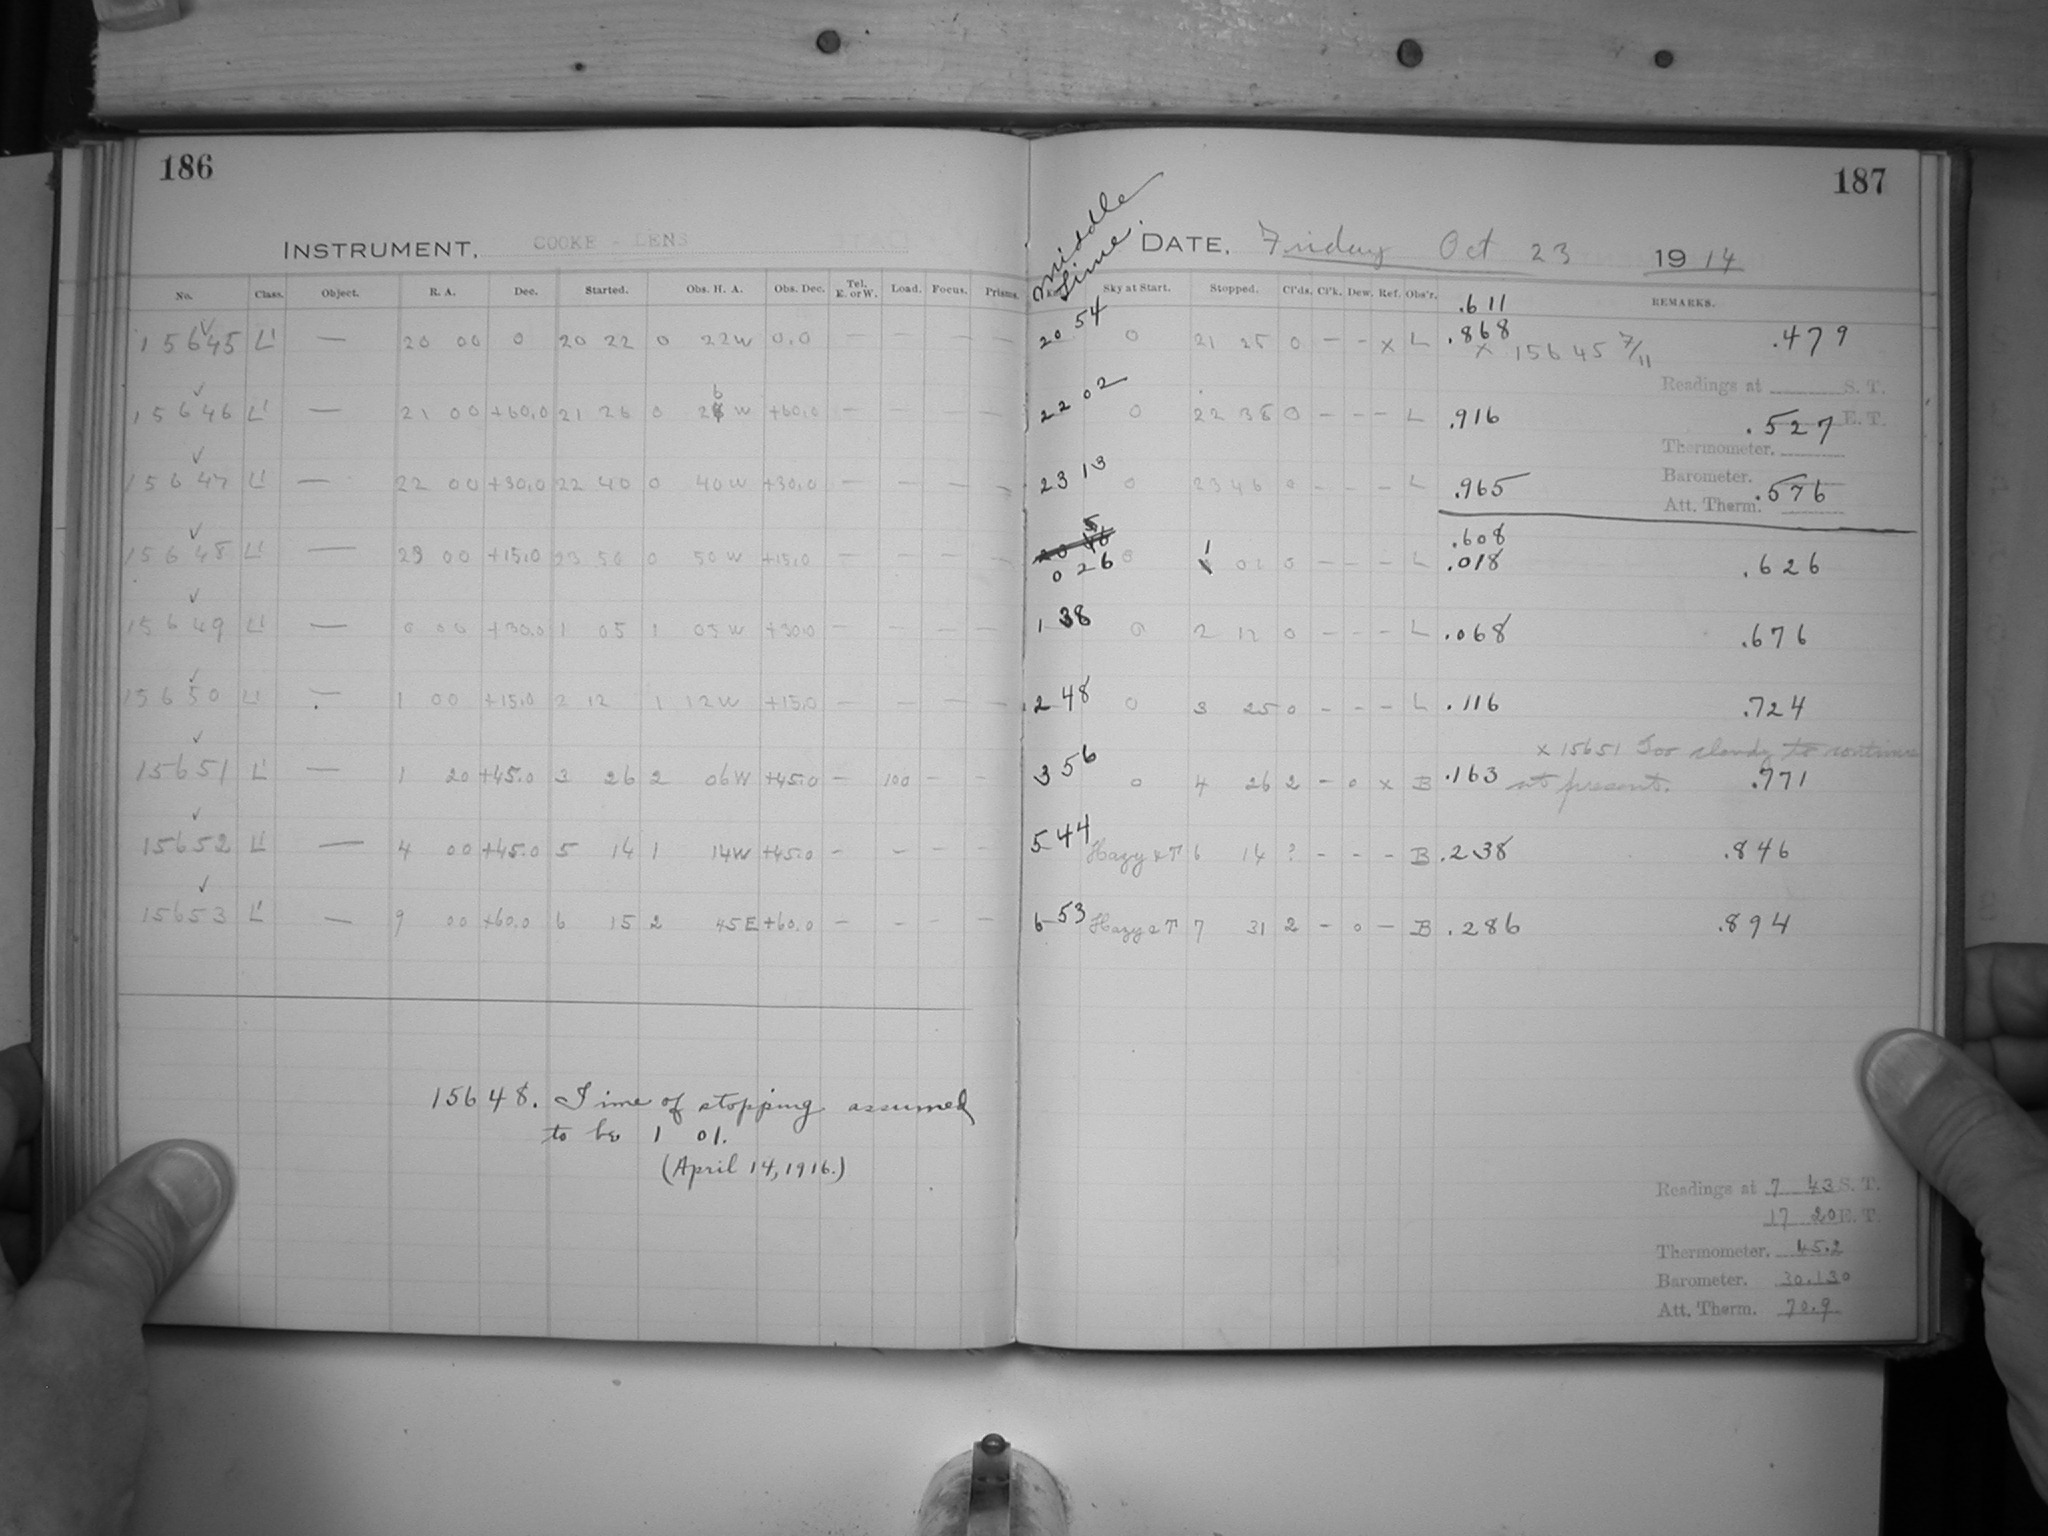 186
187
INSTRUMENT, COOKE - LENS
Middle Time.
DATE, Friday Oct 23 1914
No. Class. Object. R. A. Dec. Started. Obs. H. A. Obs. Dec. Tel. E. or W. Load. Focus. Prisms.
Sky at Start. Stopped. Cl'ds. Cl'k. Dew. Ref. Obs'r. REMARKS.
.611
15645 L' — 20 00 0 20 22 0 22W 0.0 — — — — 20 54 0 21 25 0 — — x L .868 .479
x 15645 7/11
Readings at S. T.
15646 L' — 21 00 +60.0 21 26 0 26 W +60.0 — — — — 22 02 0 22 38 0 — — — L .916 .527 E. T.
Thermometer.
Barometer.
15647 L' — 22 00 +30.0 22 40 0 40W +30.0 — — — — 23 13 0 23 46 0 — — — L .965 .576
Att. Therm.
.608
15648 L' — 23 00 +15.0 23 50 0 50W +15.0 — — — — 0 26 0 1 01 0 — — — L .018 .626
15649 L' — 0 00 +30.0 1 05 1 05W +30.0 — — — — 1 38 0 2 12 0 — — — L .068 .676
15650 L' — 1 00 +15.0 2 12 1 12W +15.0 — — — — 2 48 0 3 25 0 — — — L .116 .724
x 15651 Too cloudy to continue
15651 L' — 1 20 +45.0 3 26 2 06W +45.0 — 100 — — 3 56 0 4 26 2 — 0 x B .163 at present. .771
15652 L' — 4 00 +45.0 5 14 1 14W +45.0 — — — — 5 44 Hazy & T 6 14 ? — — — B .238 .846
15653 L' — 9 00 +60.0 6 15 2 45E +60.0 — — — — 6 53 Hazy & T 7 31 2 — 0 — B .286 .894
15648. Time of stopping assumed
to be 1 01.
(April 14, 1916.)
Readings at 7 43 S. T.
17 20 E. T.
Thermometer. 45.2
Barometer. 30.130
Att. Therm. 70.9